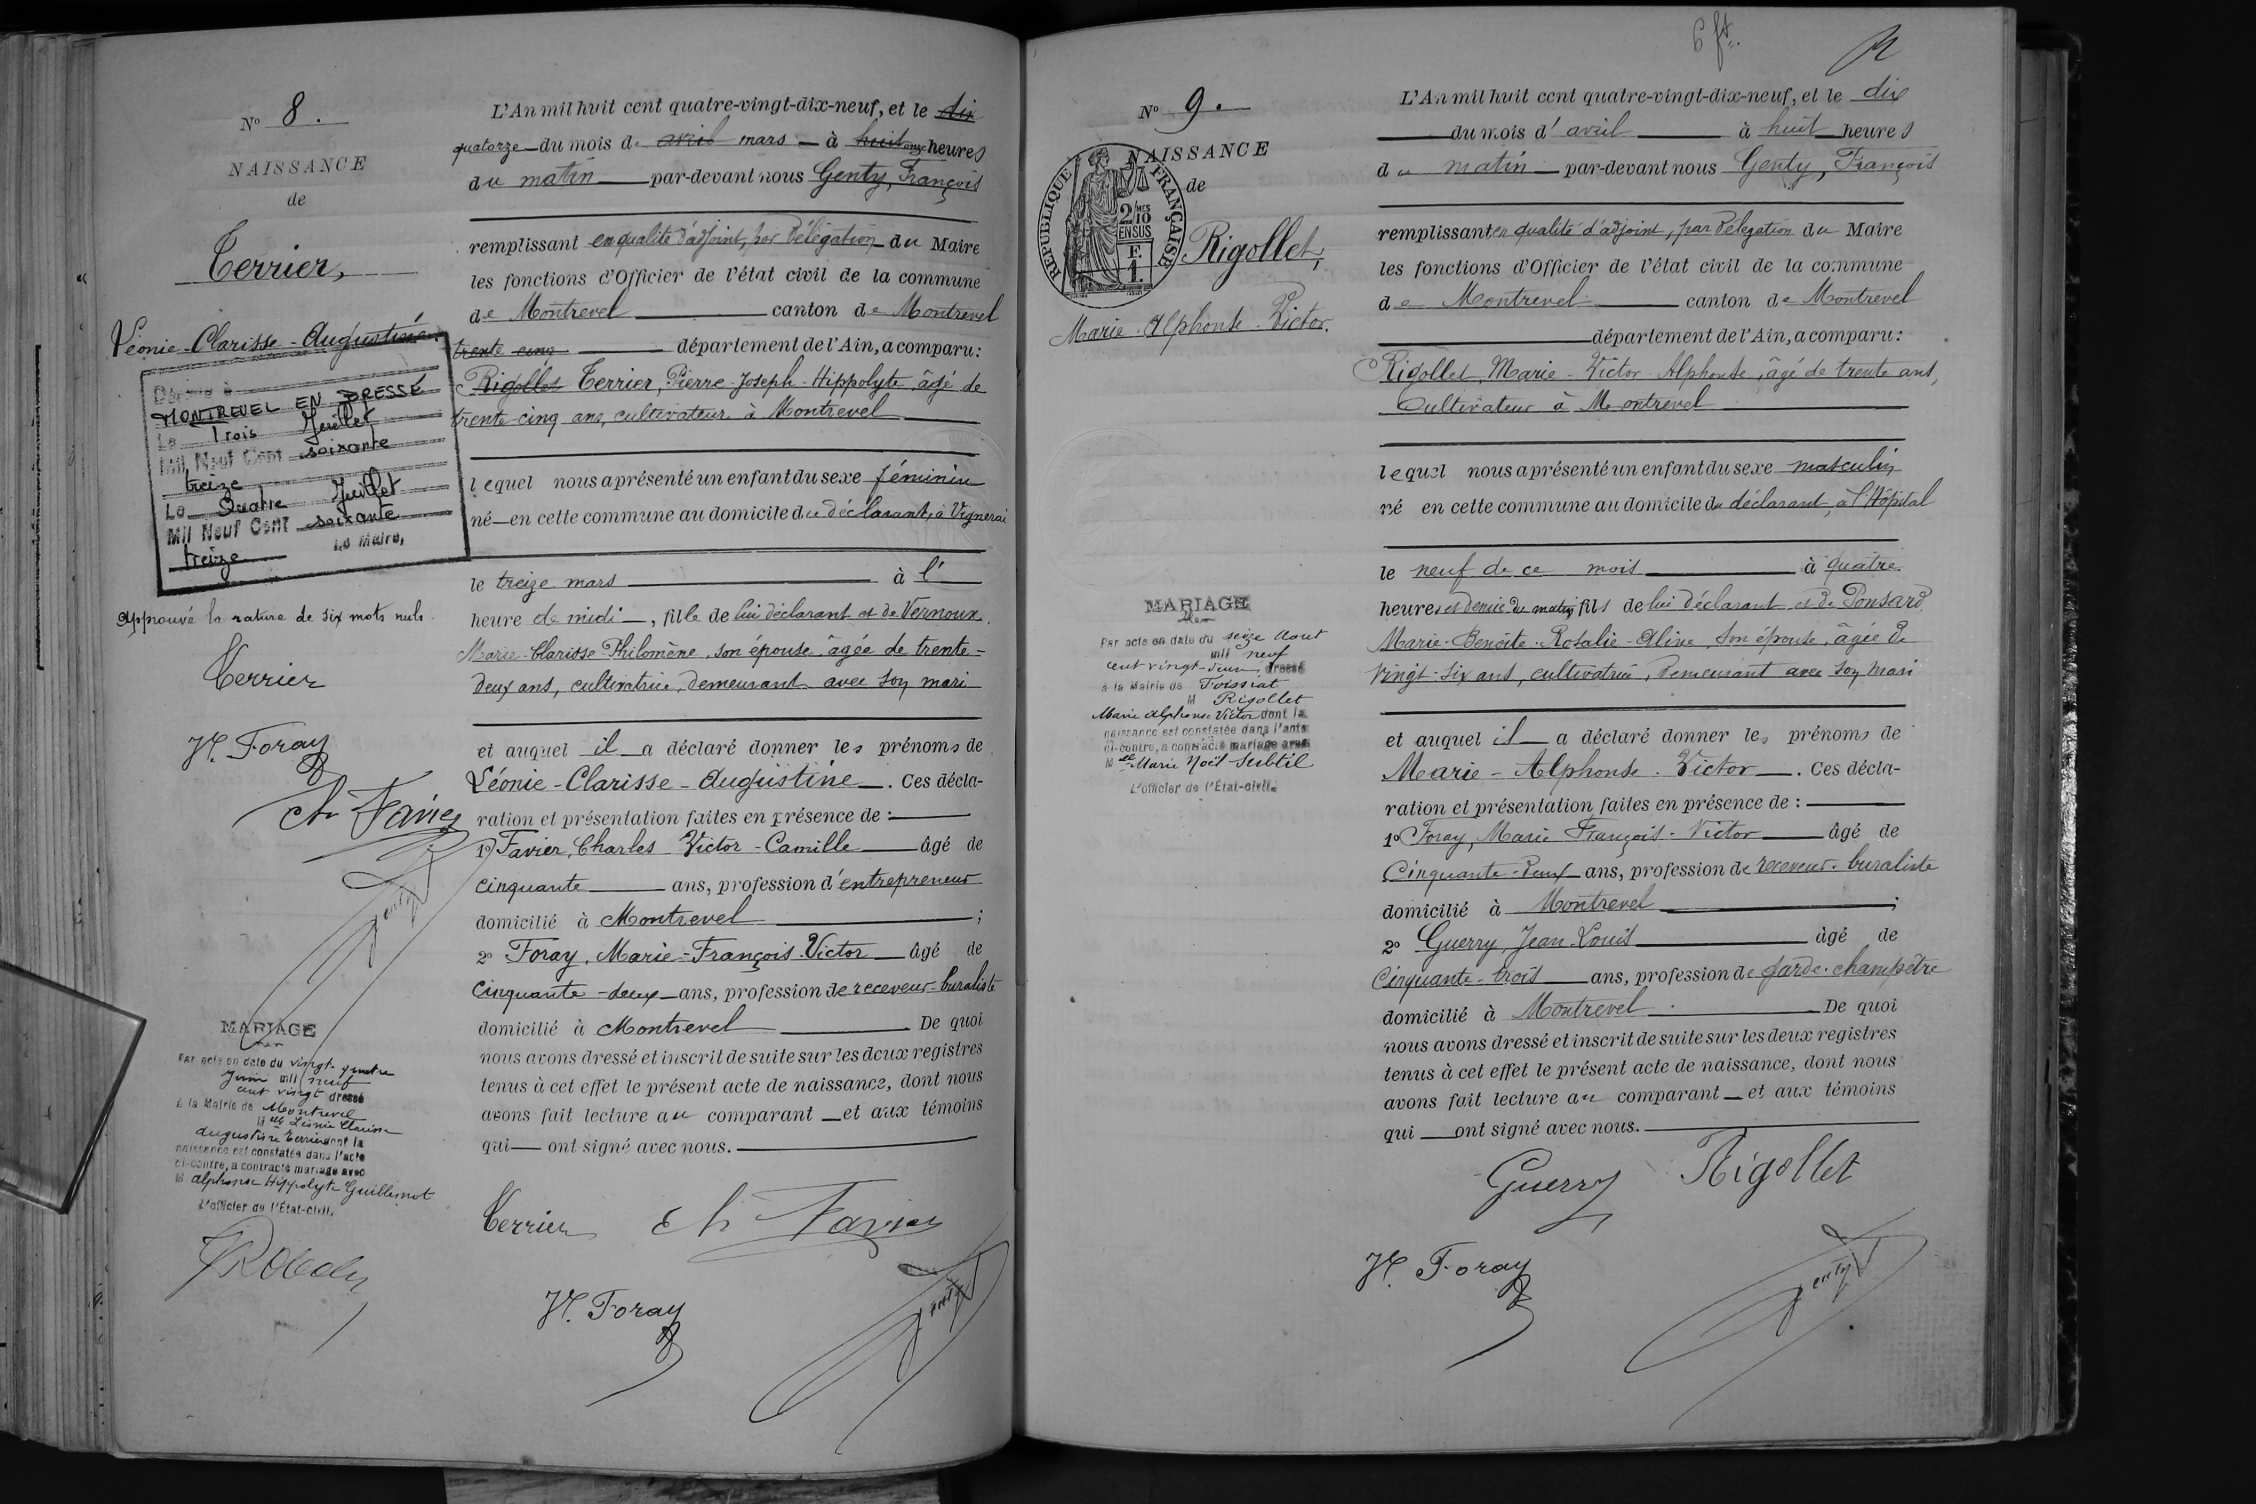 N° 8.
NAISSANCE
de
Terrier,
Léonie-Clarisse-Augustine
Décédée à
MONTREVEL EN BRESSE
Le Trois Juillet
Mil Neuf Cent soixante
treize
Le Quatre Juillet
Mil Neuf Cent soixante
treize
Le Maire,
Approuvé la rature de six mots nuls.
Terrier
V. Foray
Ch Favier
Genty
MARIAGE
Par acte en date du vingt-quatre
Juin mil neuf
cent vingt dressé
à la Mairie de Montrevel
Melle Léonie Clarisse
Augustine Terrier dont la
naissance est constatée dans l'acte
ci-contre, a contracté mariage avec
M Alphonse Hippolyte Guillemot
L'officier de l'État-civil.
L'An mil huit cent quatre-vingt-dix-neuf, et le dix
quatorze du mois de avril mars à huit onze heures
du matin par-devant nous Genty, François
remplissant en qualité d'adjoint, par délégation du Maire
les fonctions d'Officier de l'état civil de la commune
de Montrevel canton de Montrevel
trente cinq département de l'Ain, a comparu:
Rigollet Terrier, Pierre-Joseph-Hippolyte, âgé de
trente-cinq ans, cultivateur à Montrevel
lequel nous a présenté un enfant du sexe féminin
né en cette commune au domicile du déclarant, à Vignerai
le treize mars à l'
heure de midi, fille de lui déclarant et de Vernoux,
Marie-Clarisse-Philomène, son épouse âgée de trente-
deux ans, cultivatrice, demeurant avec son mari
et auquel il a déclaré donner les prénoms de
Léonie-Clarisse-Augustine. Ces décla-
ration et présentation faites en présence de :
1° Favier, Charles Victor-Camille âgé de
cinquante ans, profession d'entrepreneur
domicilié à Montrevel ;
2° Foray, Marie-François-Victor âgé de
cinquante-deux ans, profession de receveur-buraliste
domicilié à Montrevel De quoi
nous avons dressé et inscrit de suite sur les deux registres
tenus à cet effet le présent acte de naissance, dont nous
avons fait lecture au comparant et aux témoins
qui ont signé avec nous.
Terrier Ch Favier
V. Foray Genty
6 ft.
N° 9.
NAISSANCE
de
REPUBLIQUE FRANÇAISE
2/10MES
EN SUS
F.
1.
Rigollet,
Marie-Alphonse-Victor.
MARIAGE
Par acte en date du seize Aout
mil neuf
cent vingt-deux, dressé
à la Mairie de Foissiat
M Rigollet
Marie Alphonse Victor dont la
naissance est constatée dans l'acte
ci-contre, a contracté mariage avec
Melle Marie Noël Subtil
L'officier de l'État-civil.
L'An mil huit cent quatre-vingt-dix-neuf, et le dix
du mois d'avril à huit heures
du matin par-devant nous Genty, François
remplissant en qualité d'adjoint, par délégation du Maire
les fonctions d'Officier de l'état civil de la commune
de Montrevel canton de Montrevel
département de l'Ain, a comparu:
Rigollet, Marie-Victor-Alphonse, âgé de trente ans,
Cultivateur à Montrevel
lequel nous a présenté un enfant du sexe masculin
né en cette commune au domicile du déclarant, à l'Hôpital
le neuf de ce mois à quatre
heures et demie du matin fils de lui déclarant et de Ponsard,
Marie-Benoite-Rosalie-Aline, son épouse, âgée de
vingt-six ans, cultivatrice, demeurant avec son mari
et auquel il a déclaré donner les prénoms de
Marie-Alphonse-Victor. Ces décla-
ration et présentation faites en présence de :
1° Foray, Marie François-Victor âgé de
Cinquante-deux ans, profession de receveur-buraliste
domicilié à Montrevel ;
2° Guerry, Jean Louis âgé de
Cinquante-trois ans, profession de garde-champêtre
domicilié à Montrevel De quoi
nous avons dressé et inscrit de suite sur les deux registres
tenus à cet effet le présent acte de naissance, dont nous
avons fait lecture au comparant et aux témoins
qui ont signé avec nous.
Guerry Rigollet
V. Foray Genty